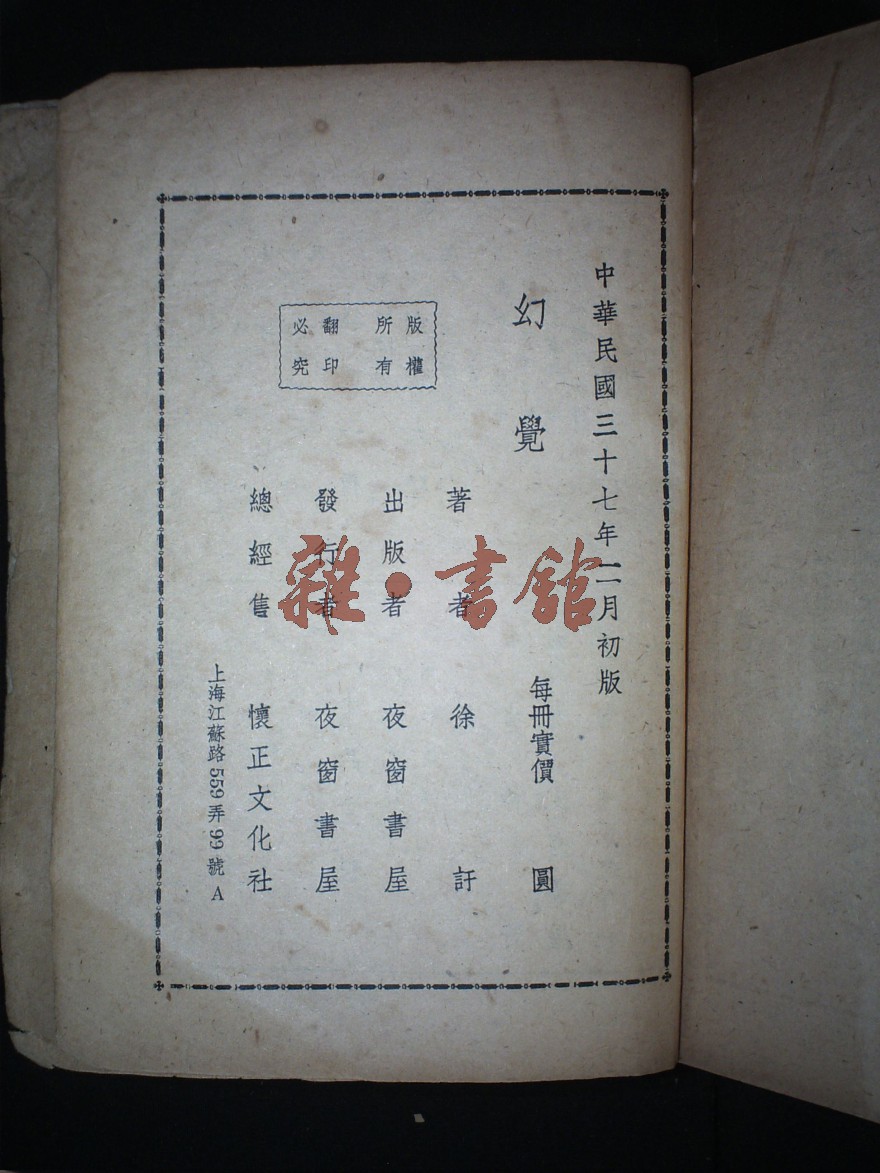 中華民國三十七年二月初版
幻覺
每冊實價 圓
著者 徐訏
出版者 夜窗書屋
發行者 夜窗書屋
總經售 懷正文化社
上海江蘇路559弄99號A
版權
所有
翻印
必究
雜·書館